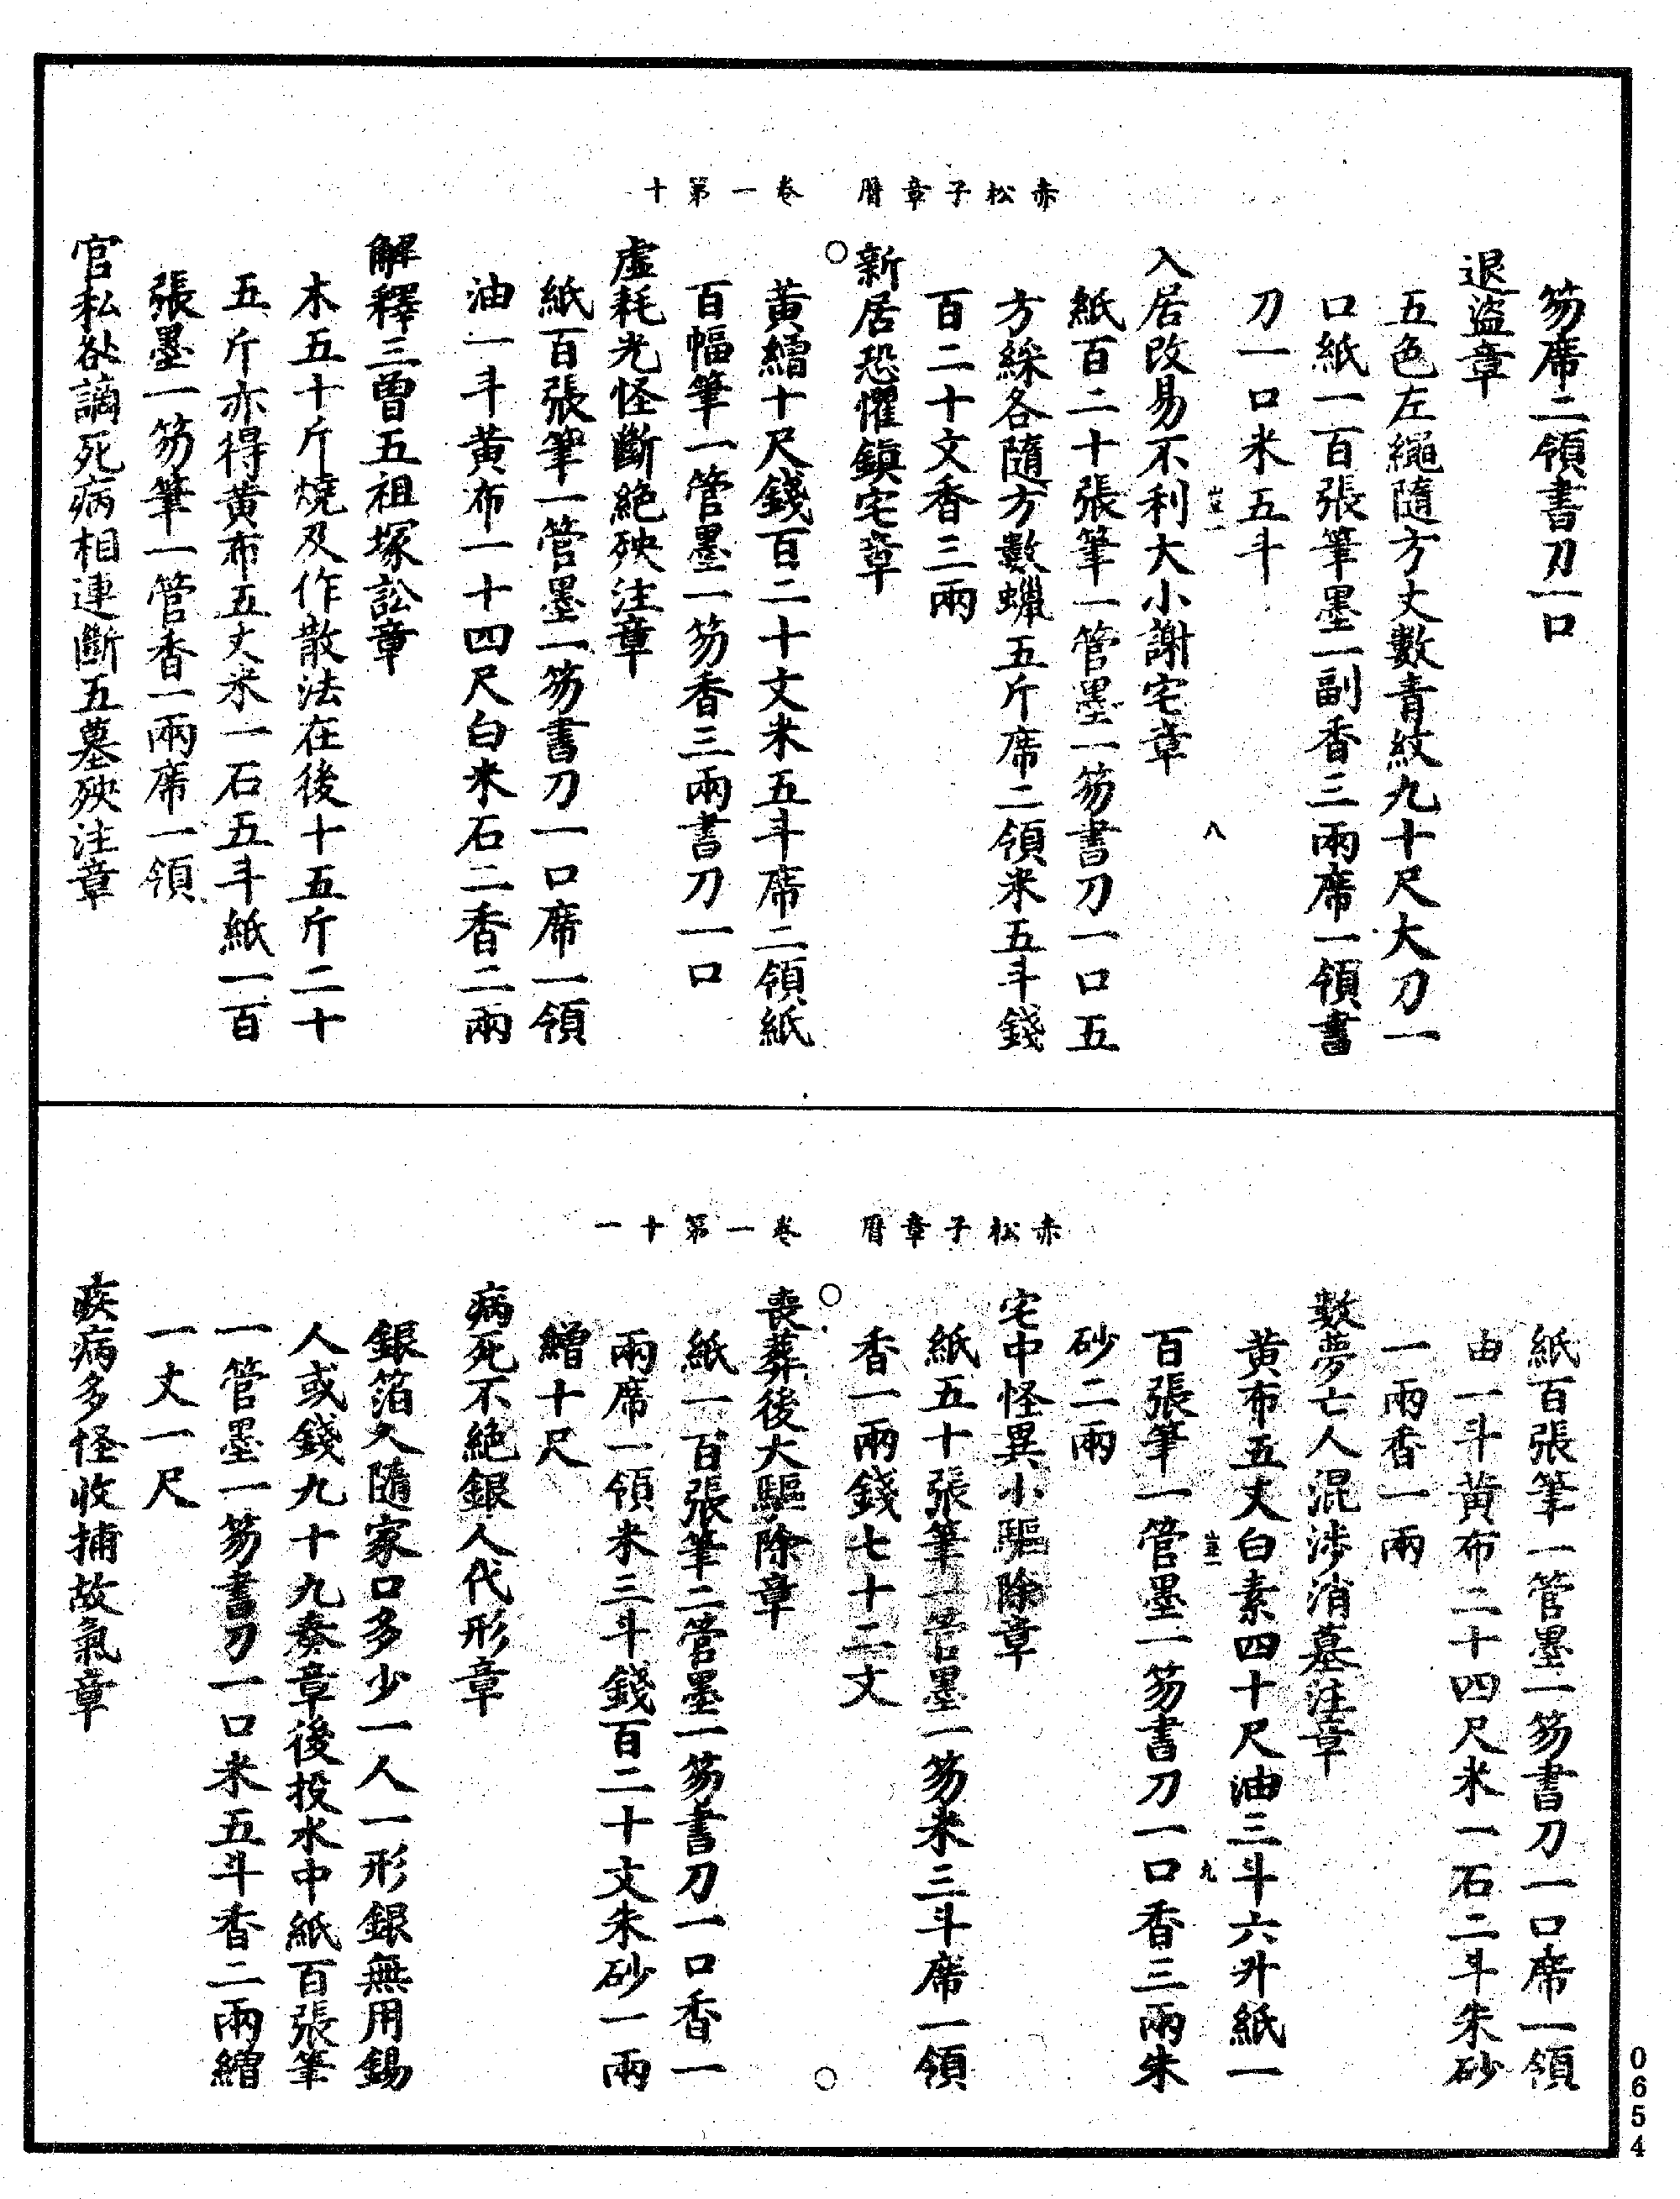 赤松子章曆 卷一第十
笏席二領書刀一口
退盜章
五色左繩隨方丈數青紋九十尺大刀一
口紙一百張筆墨一副香三兩席一領書
刀一口米五斗
八
入居改易不利大小謝宅章
紙百二十張筆一管墨一笏書刀一口五
方綵各隨方數蠟五斤席二領米五斗錢
百二十文香三兩
新居恐懼鎮宅章
黃繒十尺錢百二十文米五斗席二領紙
百幅筆一管墨一笏香三兩書刀一口
虛耗光怪斷絕殃注章
紙百張筆一管墨一笏書刀一口席一領
油一斗黃布一十四尺白米石二香二兩
解釋三曾五祖塚訟章
木五十斤燒及作散法在後十五斤二十
五斤亦得黃布五丈米一石五斗紙一百
張墨一笏筆一管香一兩席一領
官私咎謫死病相連斷五墓殃注章
赤松子章曆 卷一第十一
紙百張筆一管墨一笏書刀一口席一領
由一斗黃布二十四尺米一石二斗朱砂
一兩香一兩
數夢亡人混涉消墓注章
黃布五丈白素四十尺油三斗六升紙一
九
百張筆一管墨一笏書刀一口香三兩朱
砂二兩
宅中怪異小驅除章
紙五十張筆一管墨一笏米三斗席一領
香一兩錢七十二文
喪葬後大驅除章
紙一百張筆二管墨一笏書刀一口香一
兩席一領米三斗錢百二十文朱砂一兩
繒十尺
病死不絕銀人代形章
銀箔人隨家口多少一人一形銀無用錫
人或錢九十九奏章後投水中紙百張筆
一管墨一笏書刀一口米五斗香二兩繒
一丈一尺
疾病多怪收捕故氣章
0654